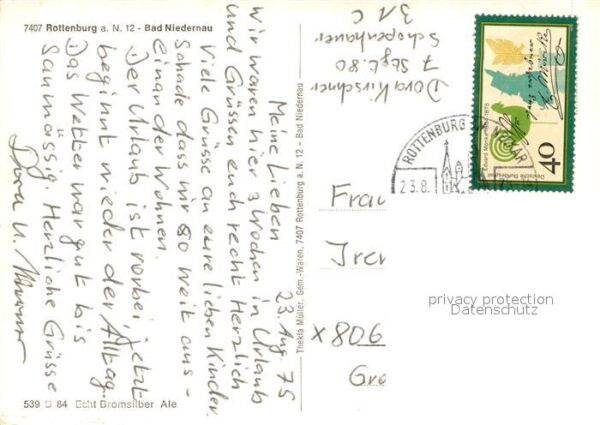 7407 Rottenburg a. N. 12 - Bad Niedernau
23. Aug 75
Meine Lieben
wir waren hier 3 Wochen in Urlaub
und Grüssen euch recht Herzlich
Viele Grüsse an eure lieben Kinder.
Schade dass wir so weit aus-
einander Wohnen.
Der Urlaub ist vorbei, jetzt
beginnt wieder der Alltag.
Das Wetter war gut bis
Saumässig. Herzliche Grüsse
Dora u.
539 D 84 Echt Bromsilber Ale
Thekla Müller, Gem.-Waren, 7407 Rottenburg a. N. 12 - Bad Niedernau
Dora Kirschner
7 Stgt. 80
Schopenhauer
31 C
ROTTENBURG NECKAR
23.8.
Eduard Mörike 1804-1875
Deutsche Bundespost
40
Frau
Iren
x 806
Gro
privacy protection
Datenschutz